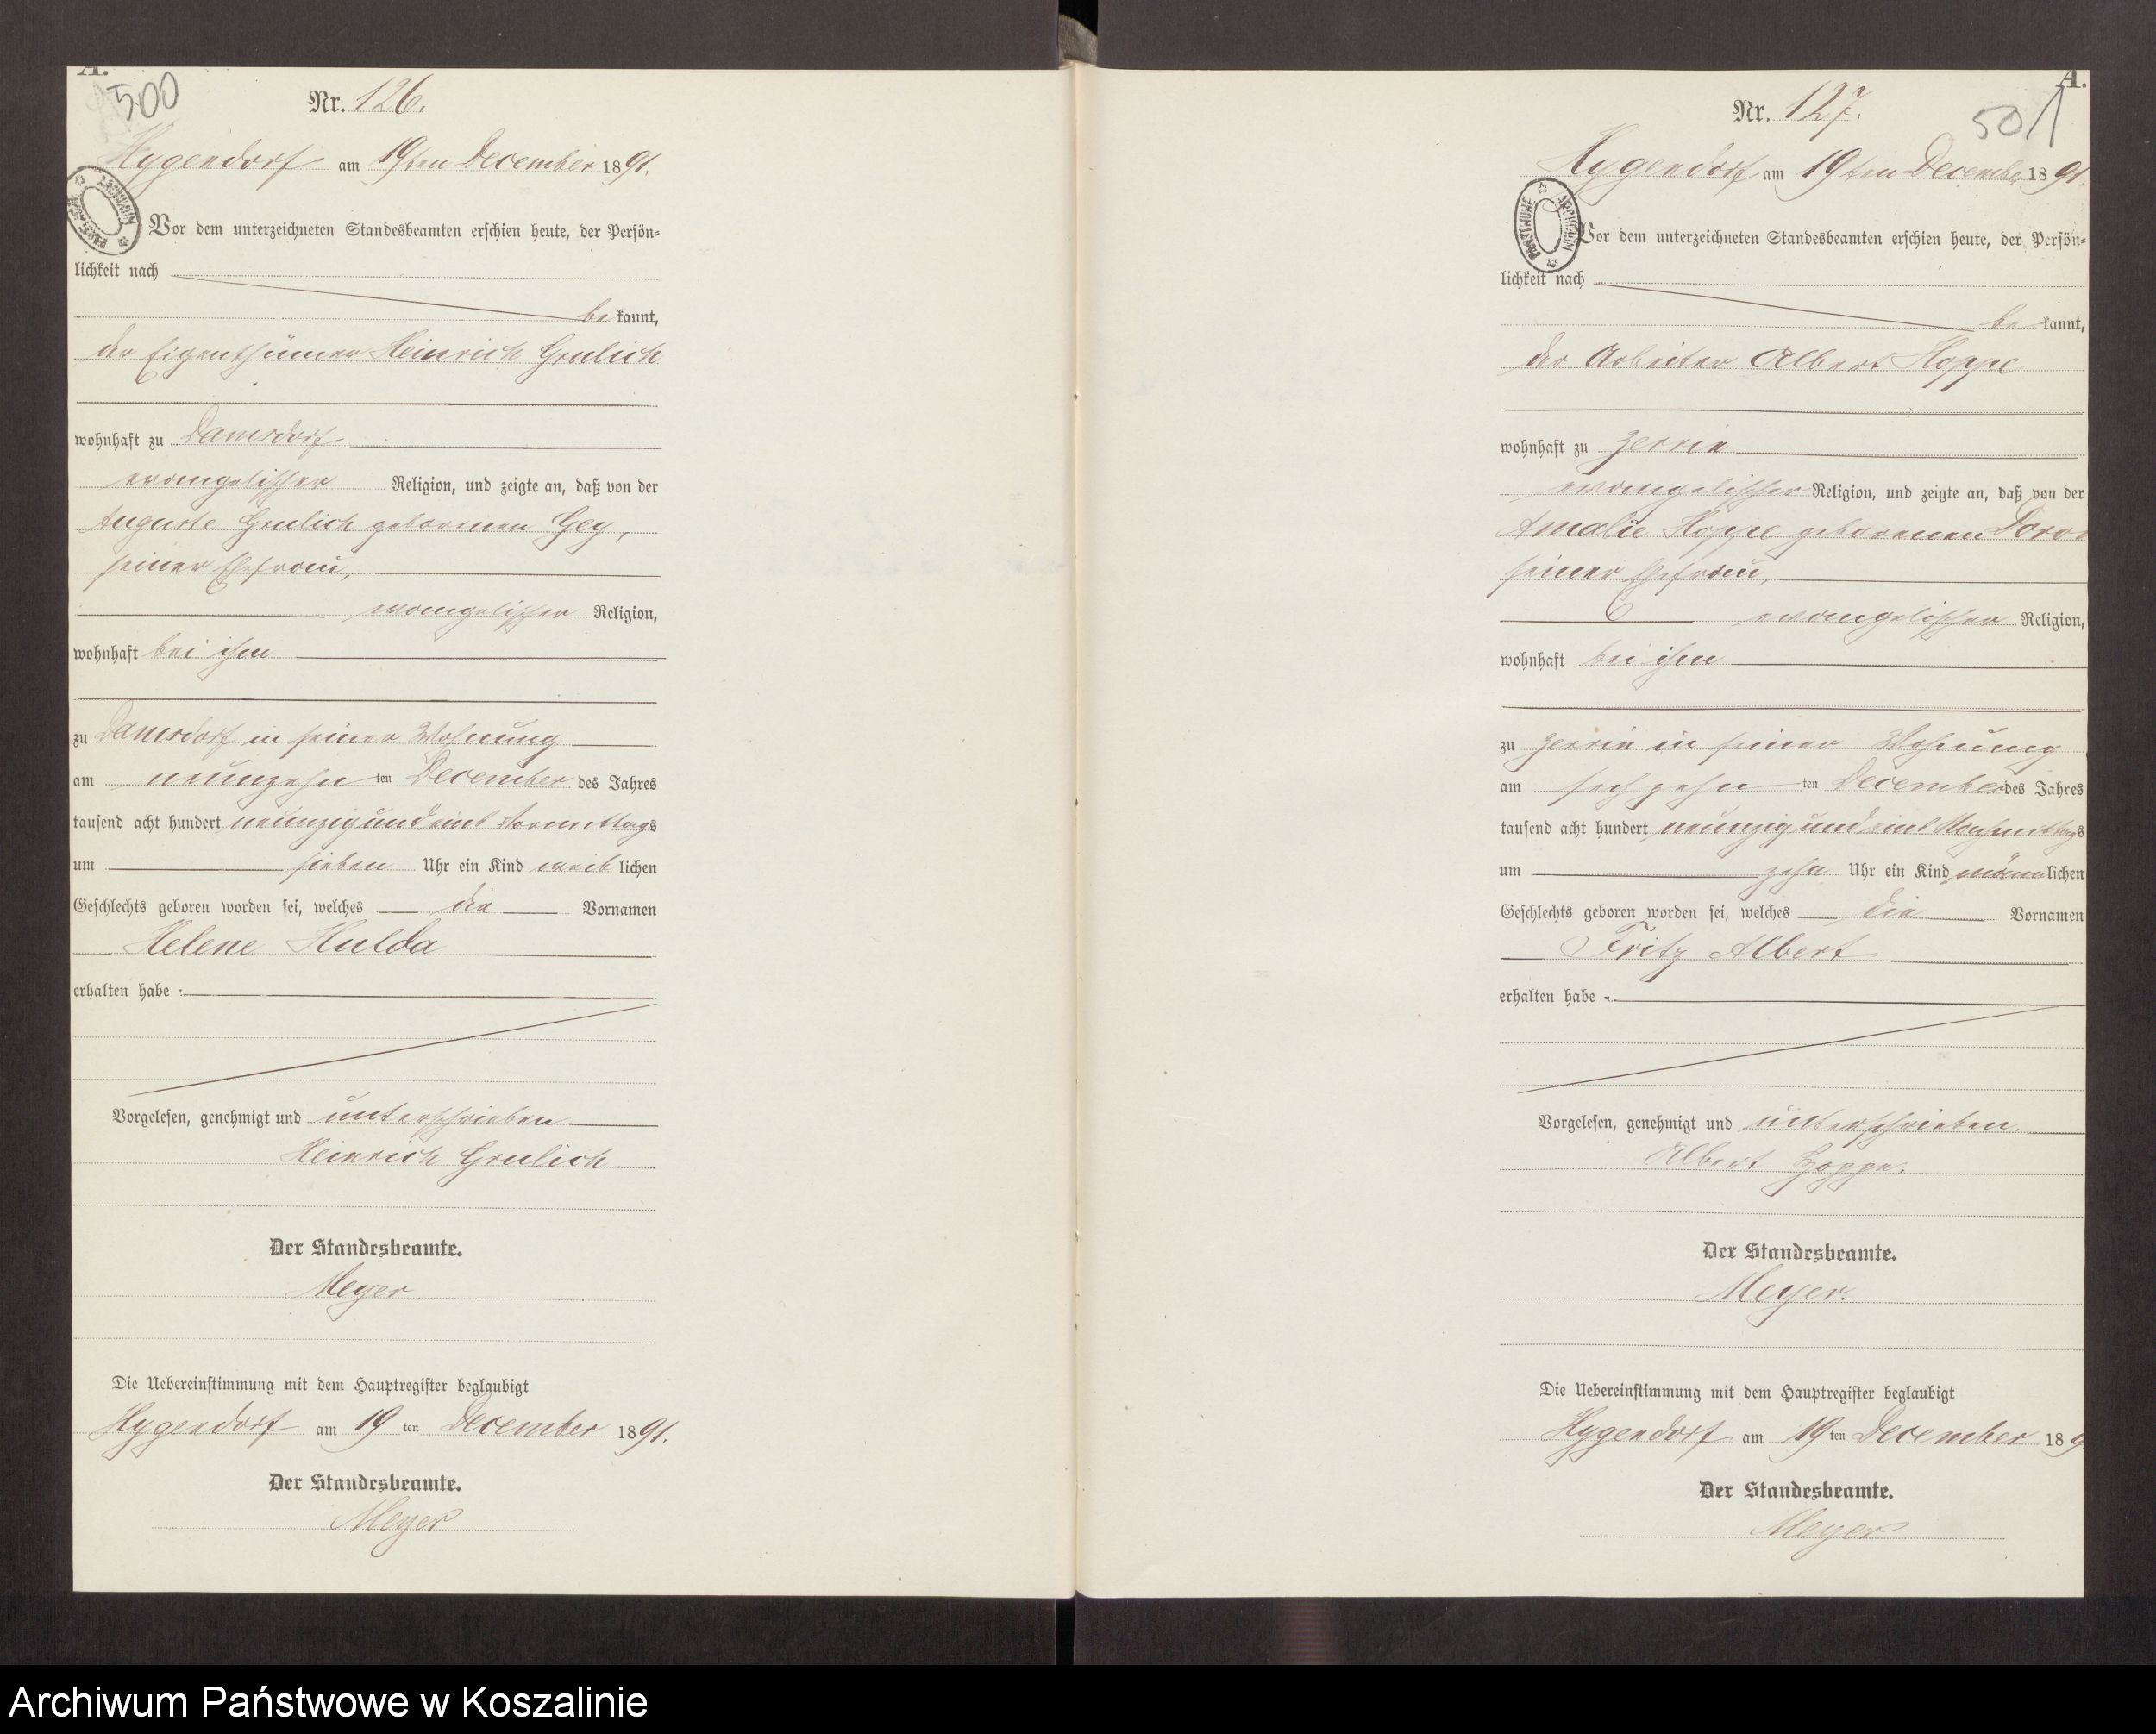 A.
500
Nr. 126.
Hygendorf am 19ten December 1891.
Vor dem unterzeichneten Standesbeamten erschien heute, der Persön-
lichkeit nach
be kannt,
der Eigenthümer Heinrich Grulich
wohnhaft zu Damsdorf
evangelischer Religion, und zeigte an, daß von der
Auguste Grulich geborenen Gey,
seiner Ehefrau,
evangelischer Religion,
wohnhaft bei ihm
zu Damsdorf in seiner Wohnung
am neunzehn ten December des Jahres
tausend acht hundert neunzig und eins Vormittags
um sieben Uhr ein Kind weib lichen
Geschlechts geboren worden sei, welches die Vornamen
Helene Hulda
erhalten habe.
Vorgelesen, genehmigt und unterschrieben
Heinrich Grulich.
Der Standesbeamte.
Meyer.
Die Uebereinstimmung mit dem Hauptregister beglaubigt
Hygendorf am 19 ten December 1891.
Der Standesbeamte.
Meyer
A.
501
Nr. 127.
Hygendorf am 19ten December 1891.
ARCHIWUM PAŃSTWOWE
Vor dem unterzeichneten Standesbeamten erschien heute, der Persön-
lichkeit nach
be kannt,
der Arbeiter Albert Hoppe
wohnhaft zu Zerrin
evangelischer Religion, und zeigte an, daß von der
Amalie Hoppe geborenen
seiner Ehefrau,
evangelischer Religion,
wohnhaft bei ihm
zu Zerrin in seiner Wohnung
am sechzehn ten December des Jahres
tausend acht hundert neunzig und eins Nachmittags
um zehn Uhr ein Kind männlichen
Geschlechts geboren worden sei, welches die Vornamen
Fritz Albert
erhalten habe.
Vorgelesen, genehmigt und unterschrieben.
Albert Hoppe.
Der Standesbeamte.
Meyer.
Die Uebereinstimmung mit dem Hauptregister beglaubigt
Hygendorf am 19 ten December 189
Der Standesbeamte.
Meyer
Archiwum Państwowe w Koszalinie